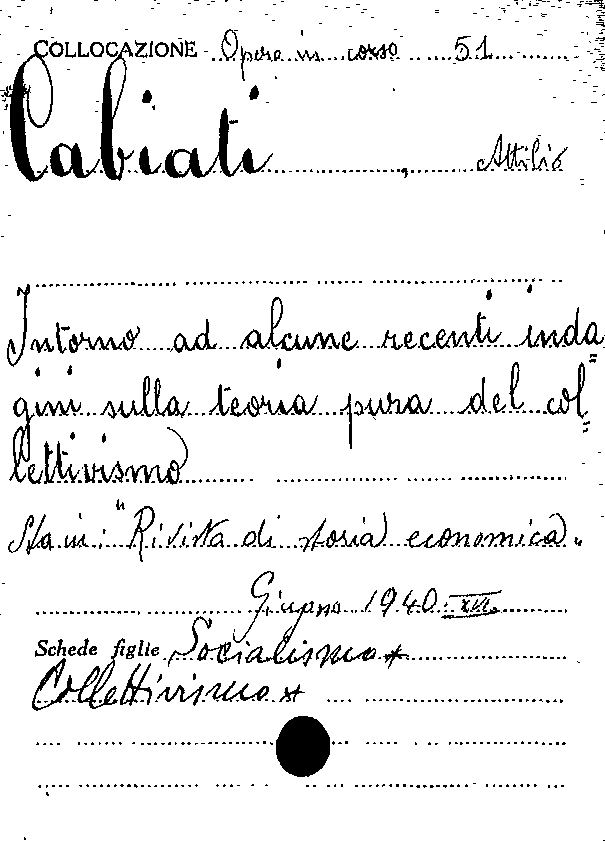 COLLOCAZIONE Opera in corso 51
Cabiati, Attilio
Intorno ad alcune recenti inda=
gini sulla teoria pura del col=
lettivismo
Sta in: "Rivista di storia economica"
Giugno 1940. XVI.
Schede figlie Socialismo*
Collettivismo*